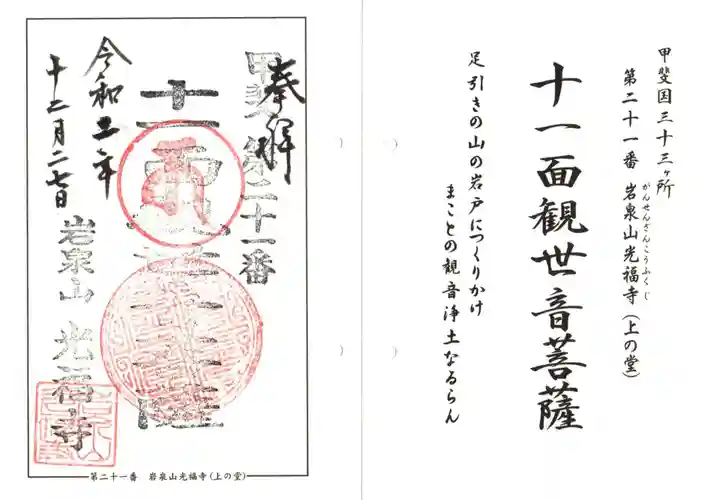 甲斐国三十三ヶ所
第二十一番 岩泉山光福寺(上の堂)
がんせんざんこうふくじ
十一面観世音菩薩
足引きの山の岩戸につくりかけ
まことの観音浄土なるらん
奉拝
甲斐第二十一番
十一面
令和二年
十二月二七日
岩泉山 光福寺
第二十一番 岩泉山光福寺(上の堂)